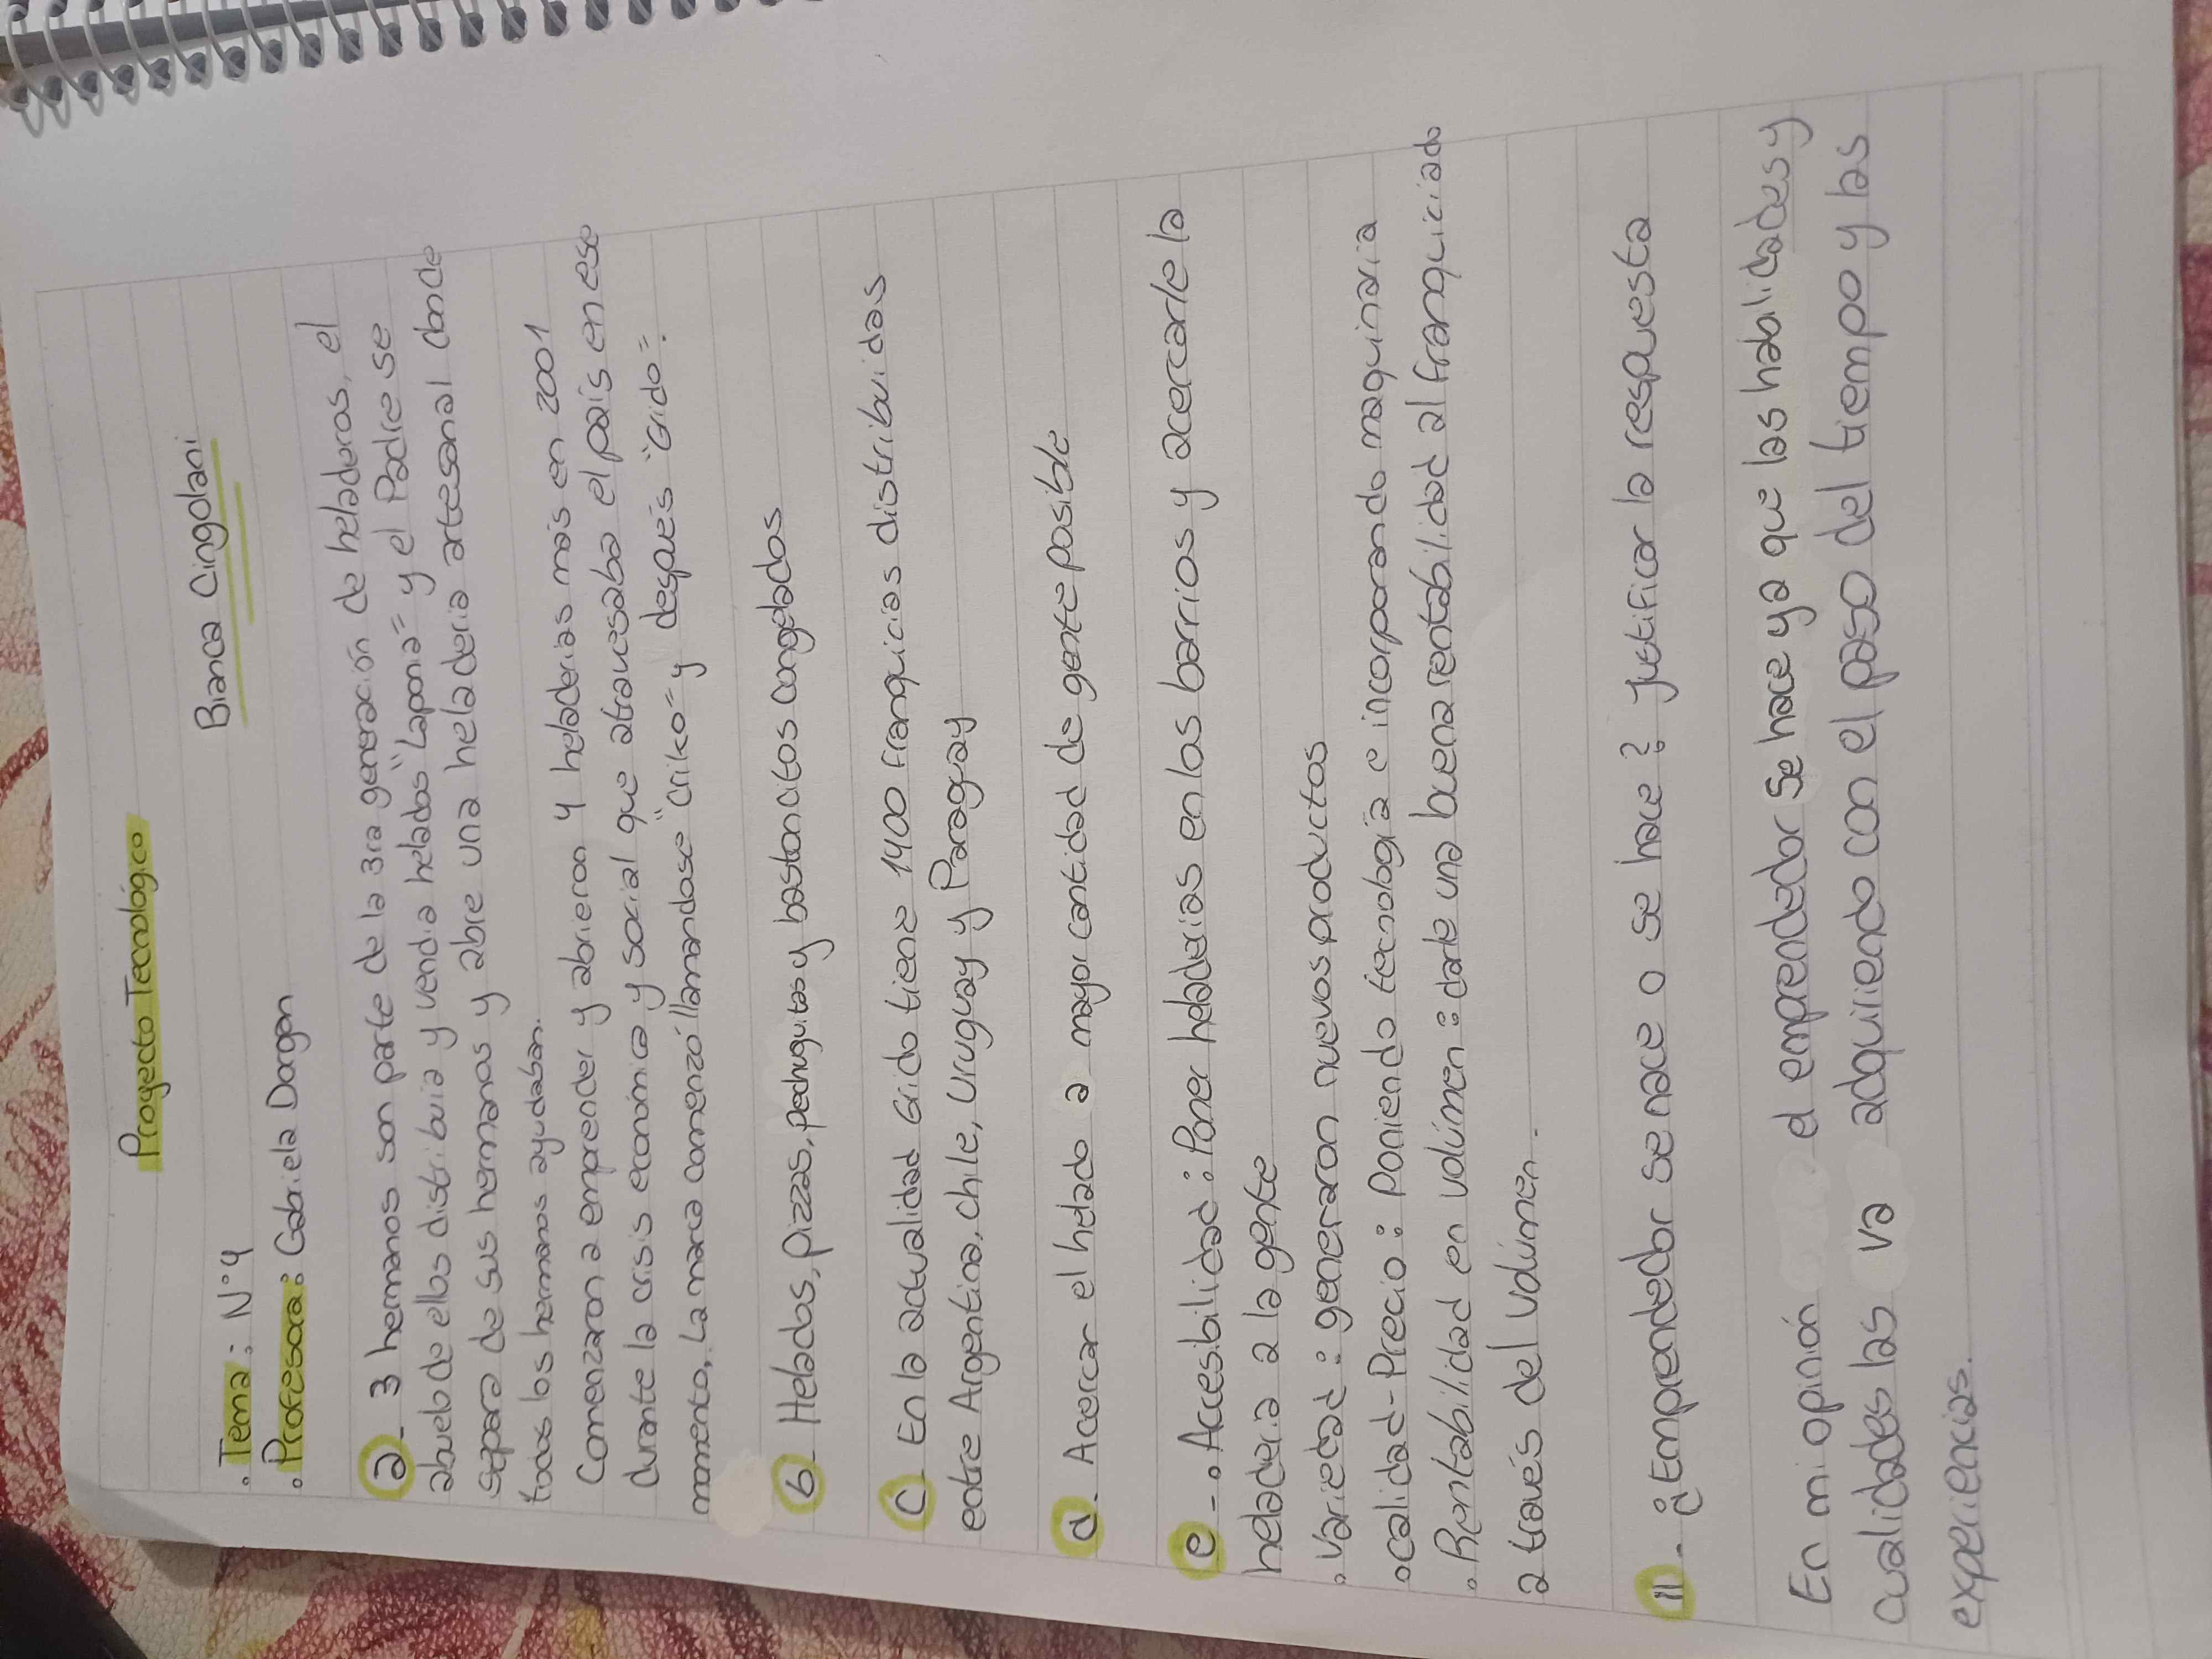 Proyecto Tecnológico
Bianca Cingolani
• Tema: N°4
• Profesora: Gabriela Dangon
a- 3 hermanos son parte de la 3ra generación de heladeros, el
abuelo de ellos distribuia y vendia helados "Laponia" y el Padre se
separa de sus hermanos y abre una heladeria artesanal donde
todos los hermanos ayudaban.
Comenzaron a emprender y abrieron 4 heladerias más en 2001
durante la crisis económica y social que atravesaba el país en ese
momento, La marca comenzó llamandose "Criko" y después "Grido".
b- Helados, pizzas, pechuguitas y bastoncitos congelados
C- En la actualidad Grido tiene 1400 franquicias distribuidas
entre Argentina, Chile, Uruguay y Paragay
d- Acercar el helado a mayor cantidad de gente posible
e- • Accesibilidad: Poner heladerias en los barrios y acercarle la
heladeria a la gente
• Variedad: generaron nuevos productos
• calidad-Precio: Poniendo tecnología e incorporando maquinaria
• Rentabilidad en volúmen: darle una buena rentabilidad al franquiciado
a través del volúmen.
11- ¿Emprendedor se nace o se hace? justificar la respuesta
En mi opinión el emprendedor se hace ya que las habilidades y
cualidades las va adquiriendo con el paso del tiempo y las
experiencias.